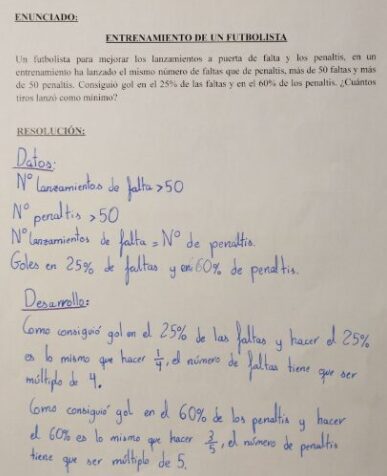 ENUNCIADO:
ENTRENAMIENTO DE UN FUTBOLISTA
Un futbolista para mejorar los lanzamientos a puerta de falta y los penaltis, en un
entrenamiento ha lanzado el mismo número de faltas que de penaltis, más de 50 faltas y más
de 50 penaltis. Consiguió gol en el 25% de las faltas y en el 60% de los penaltis. ¿Cuántos
tiros lanzó como mínimo?
RESOLUCIÓN:
Datos:
Nº lanzamientos de falta > 50
Nº penaltis > 50
Nº lanzamientos de falta = Nº de penaltis.
Goles en 25% de faltas y en 60% de penaltis.
Desarrollo:
Como consiguió gol en el 25% de las faltas y hacer el 25%
es lo mismo que hacer 1/4, el número de faltas tiene que ser
múltiplo de 4.
Como consiguió gol en el 60% de los penaltis y hacer
el 60% es lo mismo que hacer 3/5, el número de penaltis
tiene que ser múltiplo de 5.